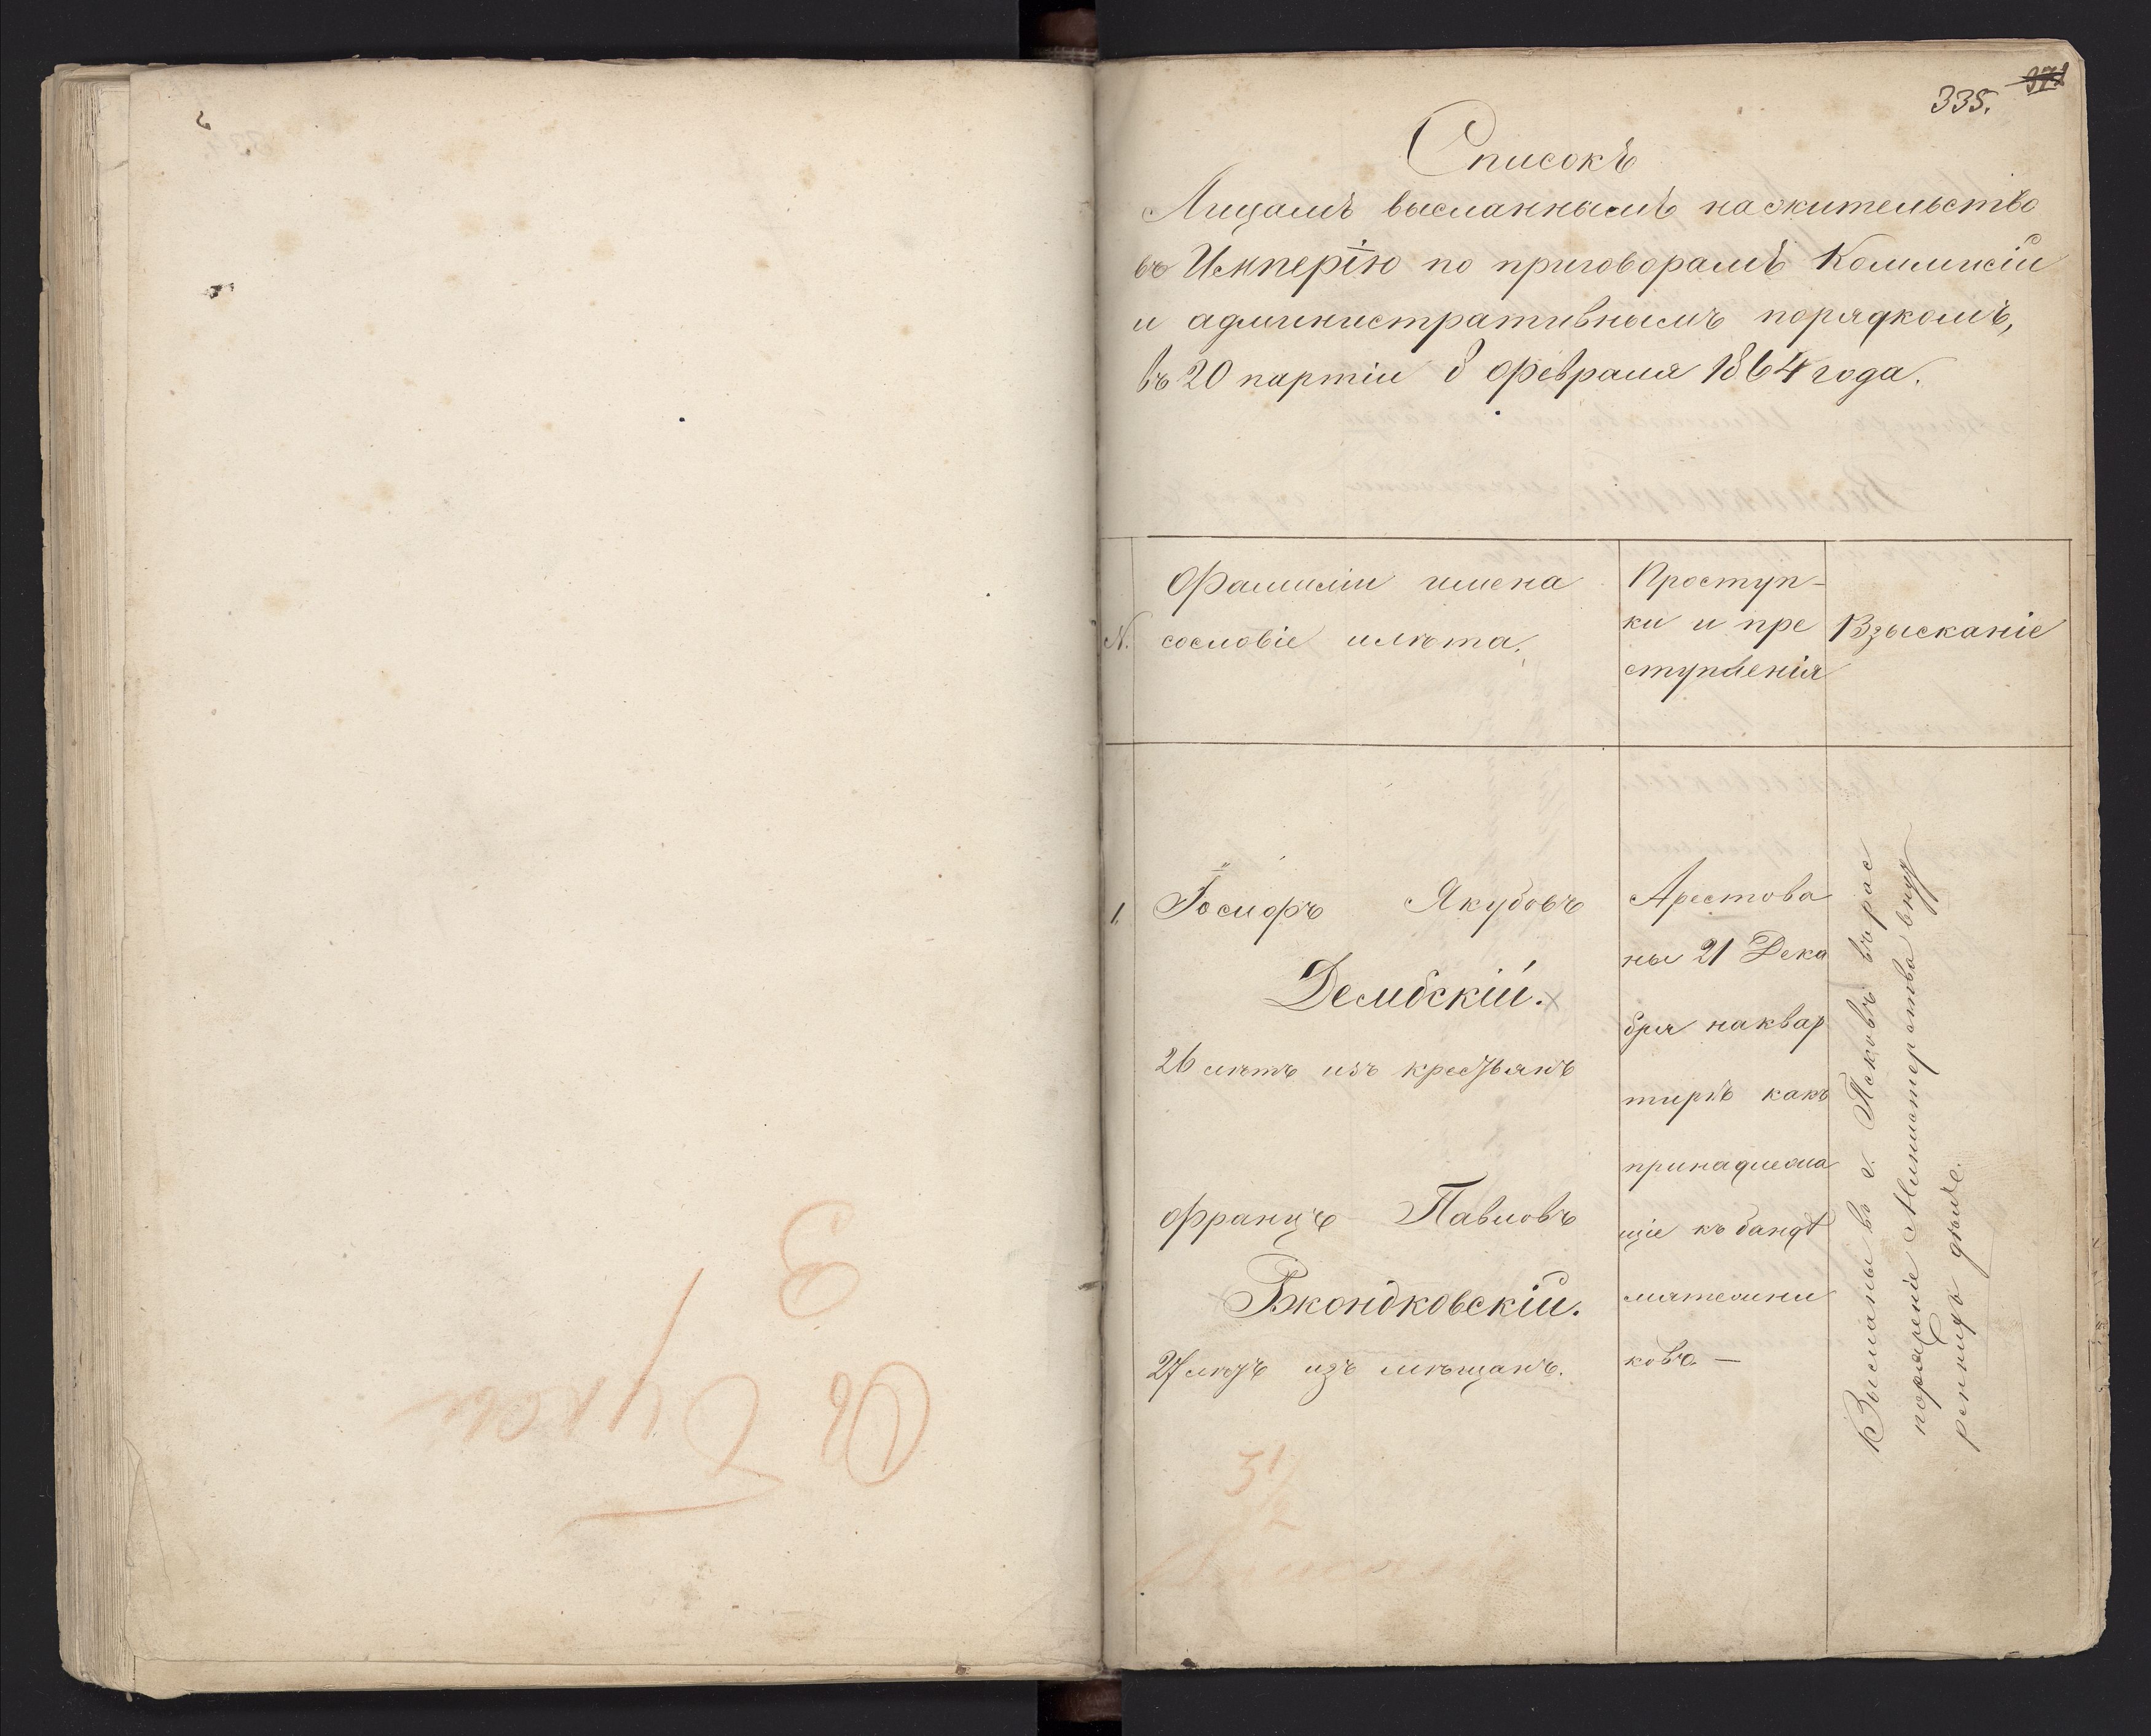 335.
Списокъ
Лицамъ высланнымъ на жительство
въ Имперію по приговорамъ Коммисіи
и административнымъ порядкомъ,
въ 20 партіи 8 Февраля 1864 года.
Фамиліи имена
N. сословіе и лѣта.
Проступ-
ки и пре
ступленія
Взысканіе
1. Іосифъ Якубовъ
Дембскій.
26 лѣтъ изъ крестьянъ
Францъ Павловъ
Ржондковскій.
27 лѣтъ изъ мѣщанъ.
Арестова
ны 21 Дека
бря на квар
тирѣ какъ
принадлежа
щіе къ бандѣ
мятежни
ковъ. —
Высланы въ г. Псковъ въ рас
поряженіе Министерства внут
реннихъ дѣлъ.
31/2